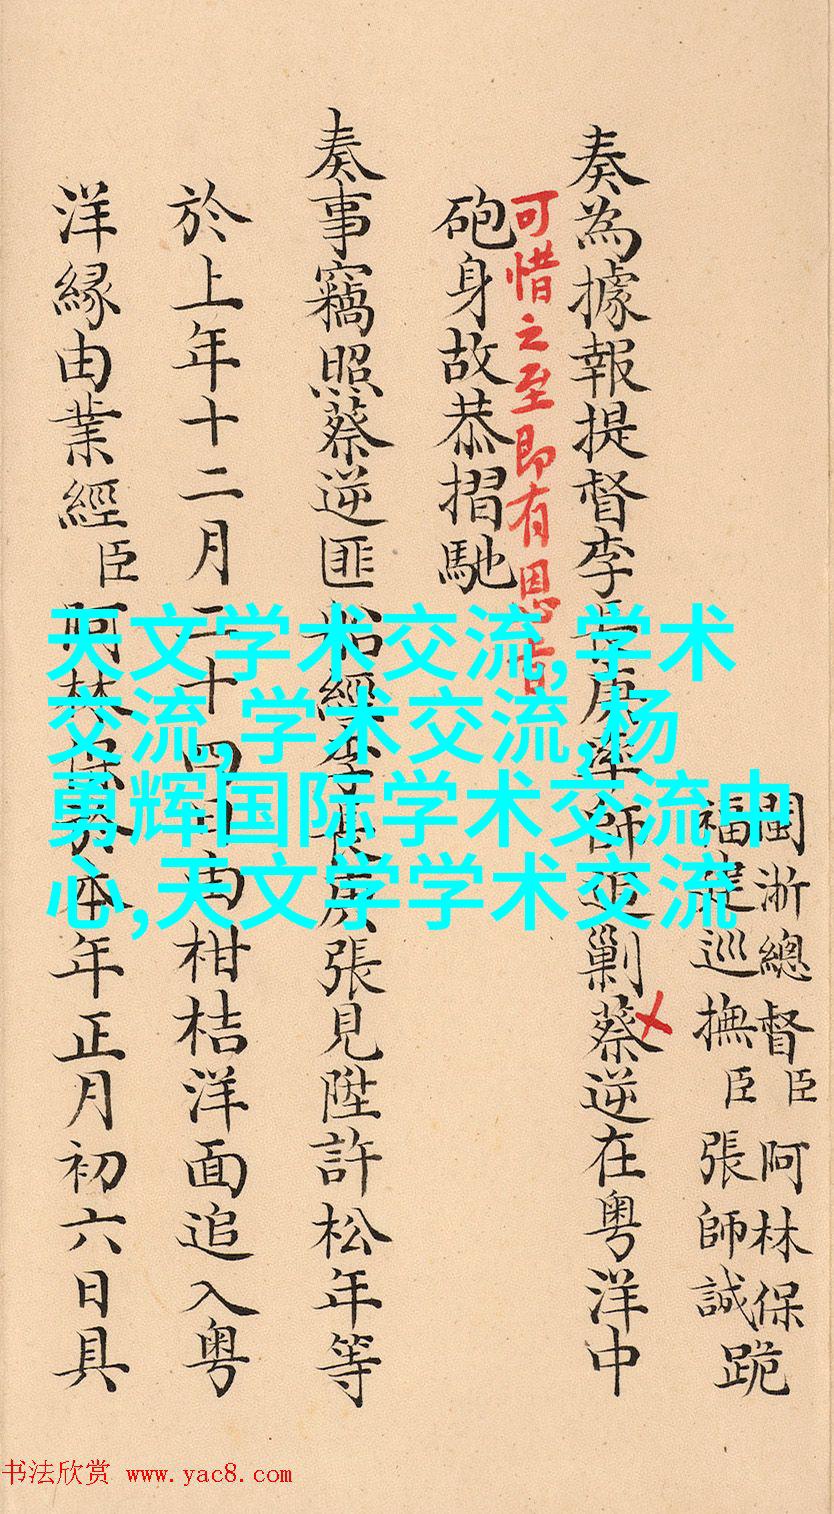 閩浙總督臣阿林保
福建巡撫臣張師誠跪
奏為據報提督李長庚率師追剿蔡逆在粤洋中
可惜之至即有恩旨
砲身故恭摺馳
奏事竊照蔡逆匪船經李長庚張見陞許松年等
於上年十二月二十四日由柑桔洋面追入粤
洋緣由業經臣阿林保於本年正月初六日具
天文学术交流,学术
交流,学术交流,杨
勇辉国际学术交流中
心,天文学学术交流
书法欣赏 www.yac8.com